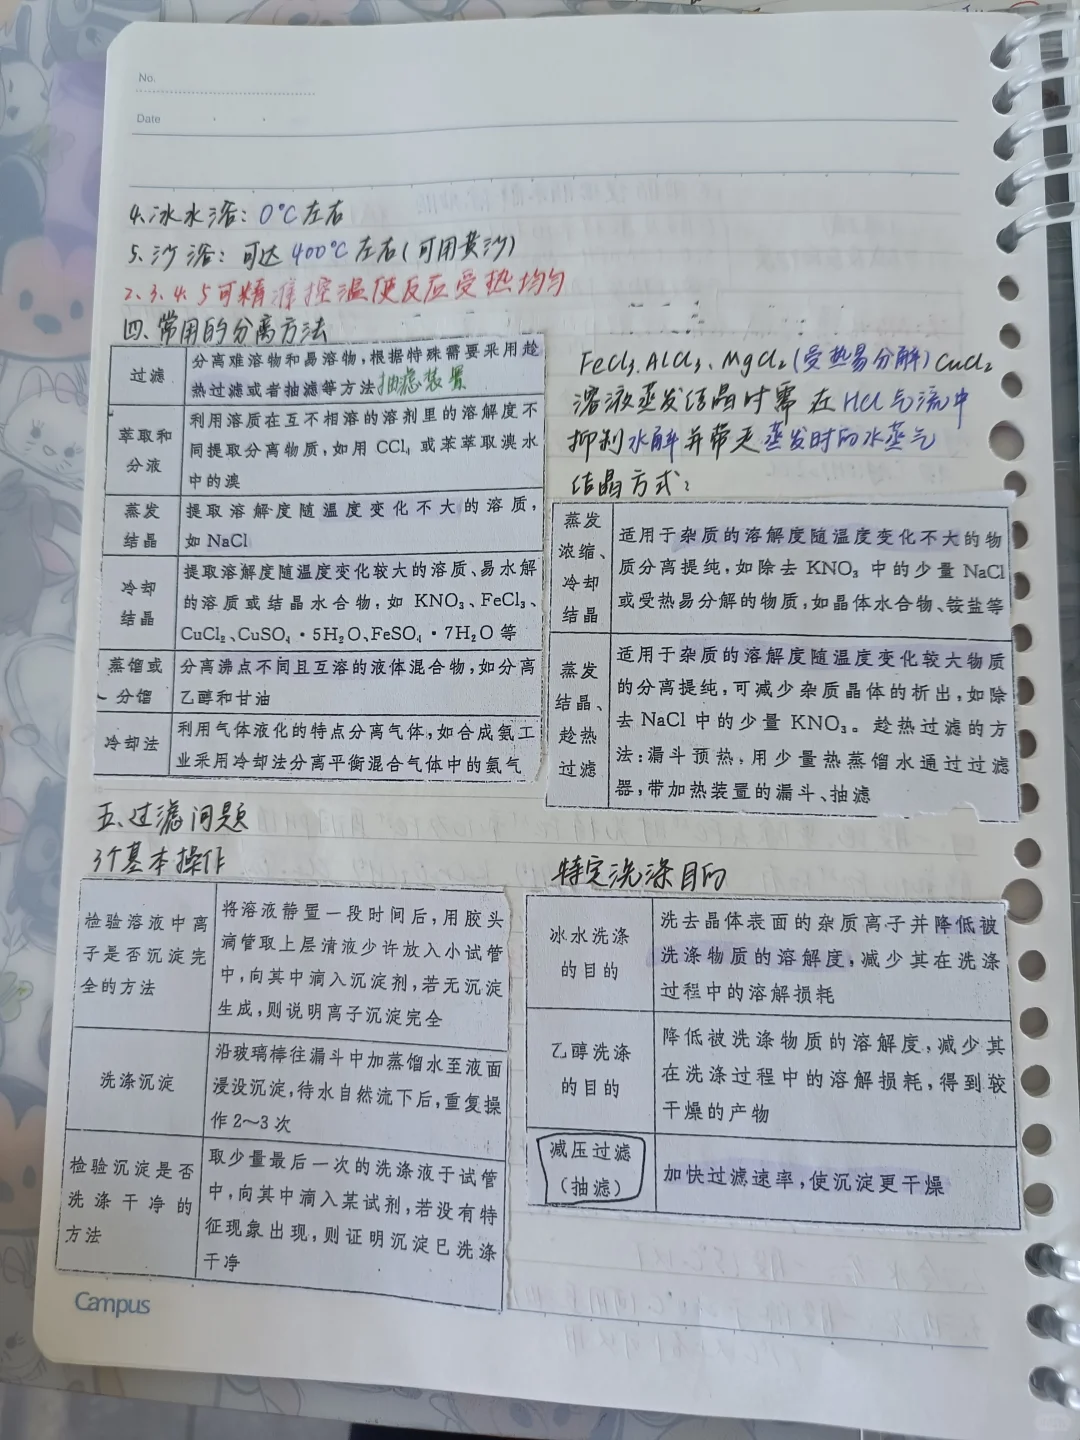 No.
Date
4.冰水浴：0°C左右
5.沙浴：可达400°C左右(可用黄沙)
2、3、4、5可精准控温使反应受热均匀
四、常用的分离方法
过滤
分离难溶物和易溶物，根据特殊需要采用趁
热过滤或者抽滤等方法抽滤装置
萃取和
分液
利用溶质在互不相溶的溶剂里的溶解度不
同提取分离物质，如用 CCl₄ 或苯萃取溴水
中的溴
蒸发
结晶
提取溶解度随温度变化不大的溶质，
如 NaCl
冷却
结晶
提取溶解度随温度变化较大的溶质、易水解
的溶质或结晶水合物，如 KNO₃、FeCl₃、
CuCl₂、CuSO₄・5H₂O、FeSO₄・7H₂O 等
蒸馏或
分馏
分离沸点不同且互溶的液体混合物，如分离
乙醇和甘油
冷却法
利用气体液化的特点分离气体，如合成氨工
业采用冷却法分离平衡混合气体中的氨气
FeCl₃、AlCl₃、MgCl₂(受热易分解)CuCl₂
溶液蒸发结晶时需在HCl气流中
抑制水解并带走蒸发时的水蒸气
结晶方式：
蒸发
浓缩、
冷却
结晶
适用于杂质的溶解度随温度变化不大的物
质分离提纯，如除去 KNO₃ 中的少量 NaCl
或受热易分解的物质，如晶体水合物、铵盐等
蒸发
结晶、
趁热
过滤
适用于杂质的溶解度随温度变化较大物质
的分离提纯，可减少杂质晶体的析出，如除
去 NaCl 中的少量 KNO₃。趁热过滤的方
法：漏斗预热，用少量热蒸馏水通过过滤
器，带加热装置的漏斗、抽滤
五、过滤问题
3个基本操作
检验溶液中离
子是否沉淀完
全的方法
将溶液静置一段时间后，用胶头
滴管取上层清液少许放入小试管
中，向其中滴入沉淀剂，若无沉淀
生成，则说明离子沉淀完全
洗涤沉淀
沿玻璃棒往漏斗中加蒸馏水至液面
浸没沉淀，待水自然流下后，重复操
作 2～3 次
检验沉淀是否
洗涤干净的
方法
取少量最后一次的洗涤液于试管
中，向其中滴入某试剂，若没有特
征现象出现，则证明沉淀已洗涤
干净
特定洗涤目的
冰水洗涤
的目的
洗去晶体表面的杂质离子并降低被
洗涤物质的溶解度，减少其在洗涤
过程中的溶解损耗
乙醇洗涤
的目的
降低被洗涤物质的溶解度，减少其
在洗涤过程中的溶解损耗，得到较
干燥的产物
减压过滤
（抽滤）
加快过滤速率，使沉淀更干燥
Campus